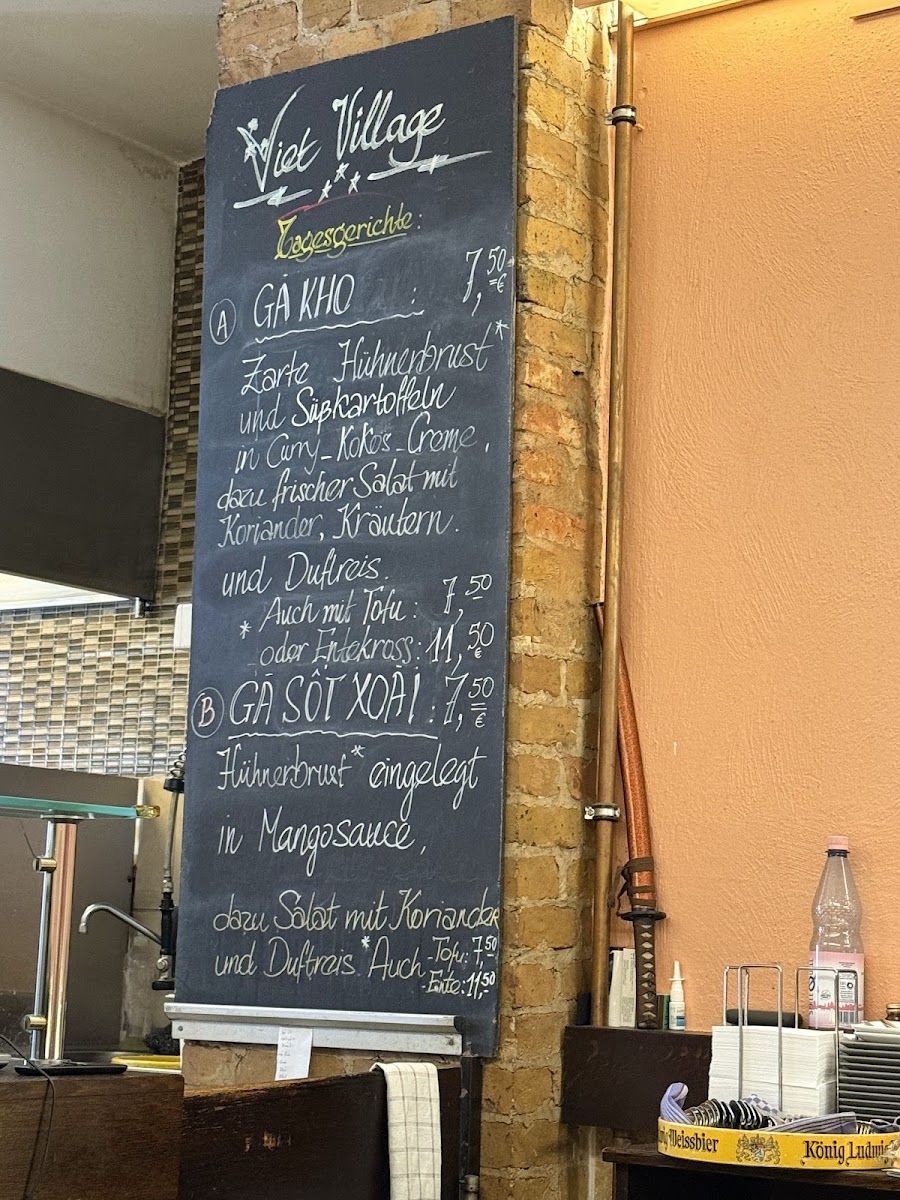 Viet Village
Tagesgerichte:
A GÀ KHO : 7,50 €
Zarte Hühnerbrust*
und Süßkartoffeln
in Curry-Kokos-Creme,
dazu frischer Salat mit
Koriander, Kräutern.
und Duftreis.
* Auch mit Tofu: 7,50
oder Entekross: 11,50 €
B GÀ SỐT XOÀI : 7,50 €
Hühnerbrust* eingelegt
in Mangosauce,
dazu Salat mit Koriander
und Duftreis *Auch -Tofu: 7,50
-Ente: 11,50
Weissbier König Ludwig